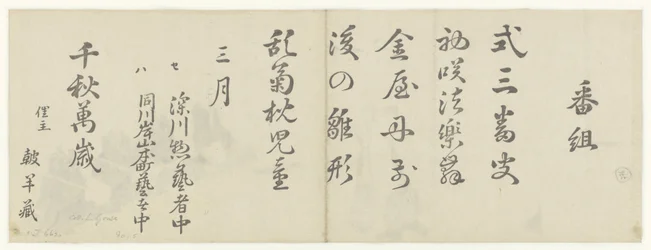 番組
式三番叟
初咲法楽舞
金屋丹前
後の雛形
乱菊枕児童
三月
七 深川惣藝者中
八 同川岸山本藝者中
千秋萬歳
催主
皷羊蔵